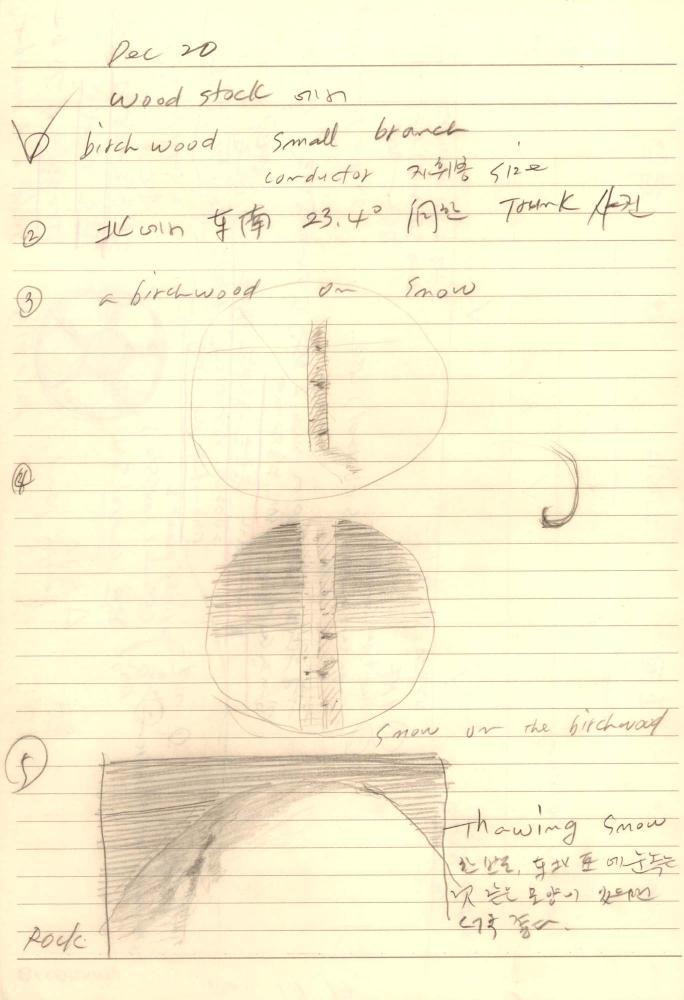 Dec 20
Wood stock 에서
① birch wood small branch
conductor 지휘봉 size
② 北에서 东南 23.4° 向한 Trunk 사진
③ a birchwood on snow
④
Snow on the birchwood
⑤
Thawing Snow
东北 에 눈녹은
모양이 있으면
더욱 좋다.
Rock